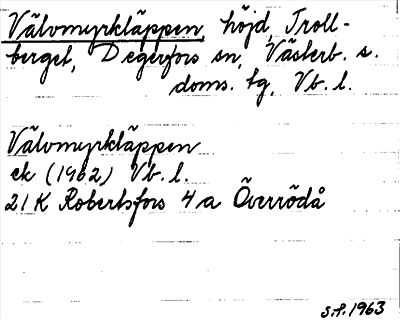 Välvomyrkläppen, höjd, Troll-
berget, Degerfors sn, Västerb. s.
doms. tg, Vb. l.
Välvomyrkläppen
ek (1962) Vb. l.
21 K Robertsfors 4 a Överrödå
S.F. 1963